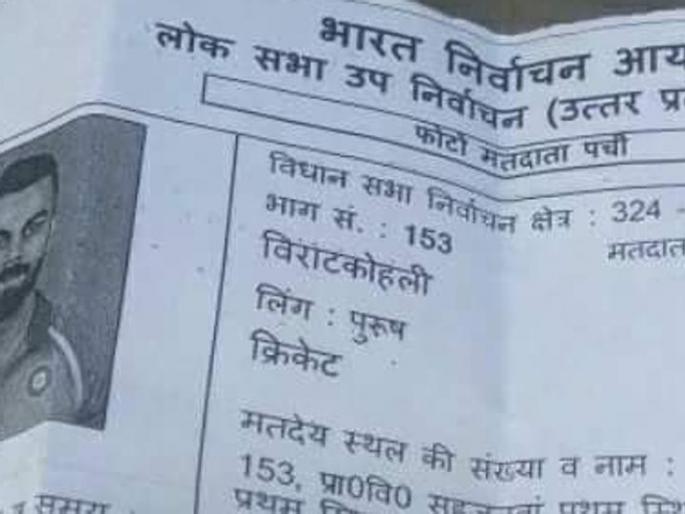 भारत निर्वाचन आय
लोक सभा उप निर्वाचन (उत्तर प्र
फोटो मतदाता पर्ची
विधान सभा निर्वाचन क्षेत्र : 324 -
भाग सं. : 153
मतदात
विराटकोहली
लिंग : पुरूष
क्रिकेट
मतदेय स्थल की संख्या व नाम :
153, प्रा0वि0 प्रथम
प्रथम